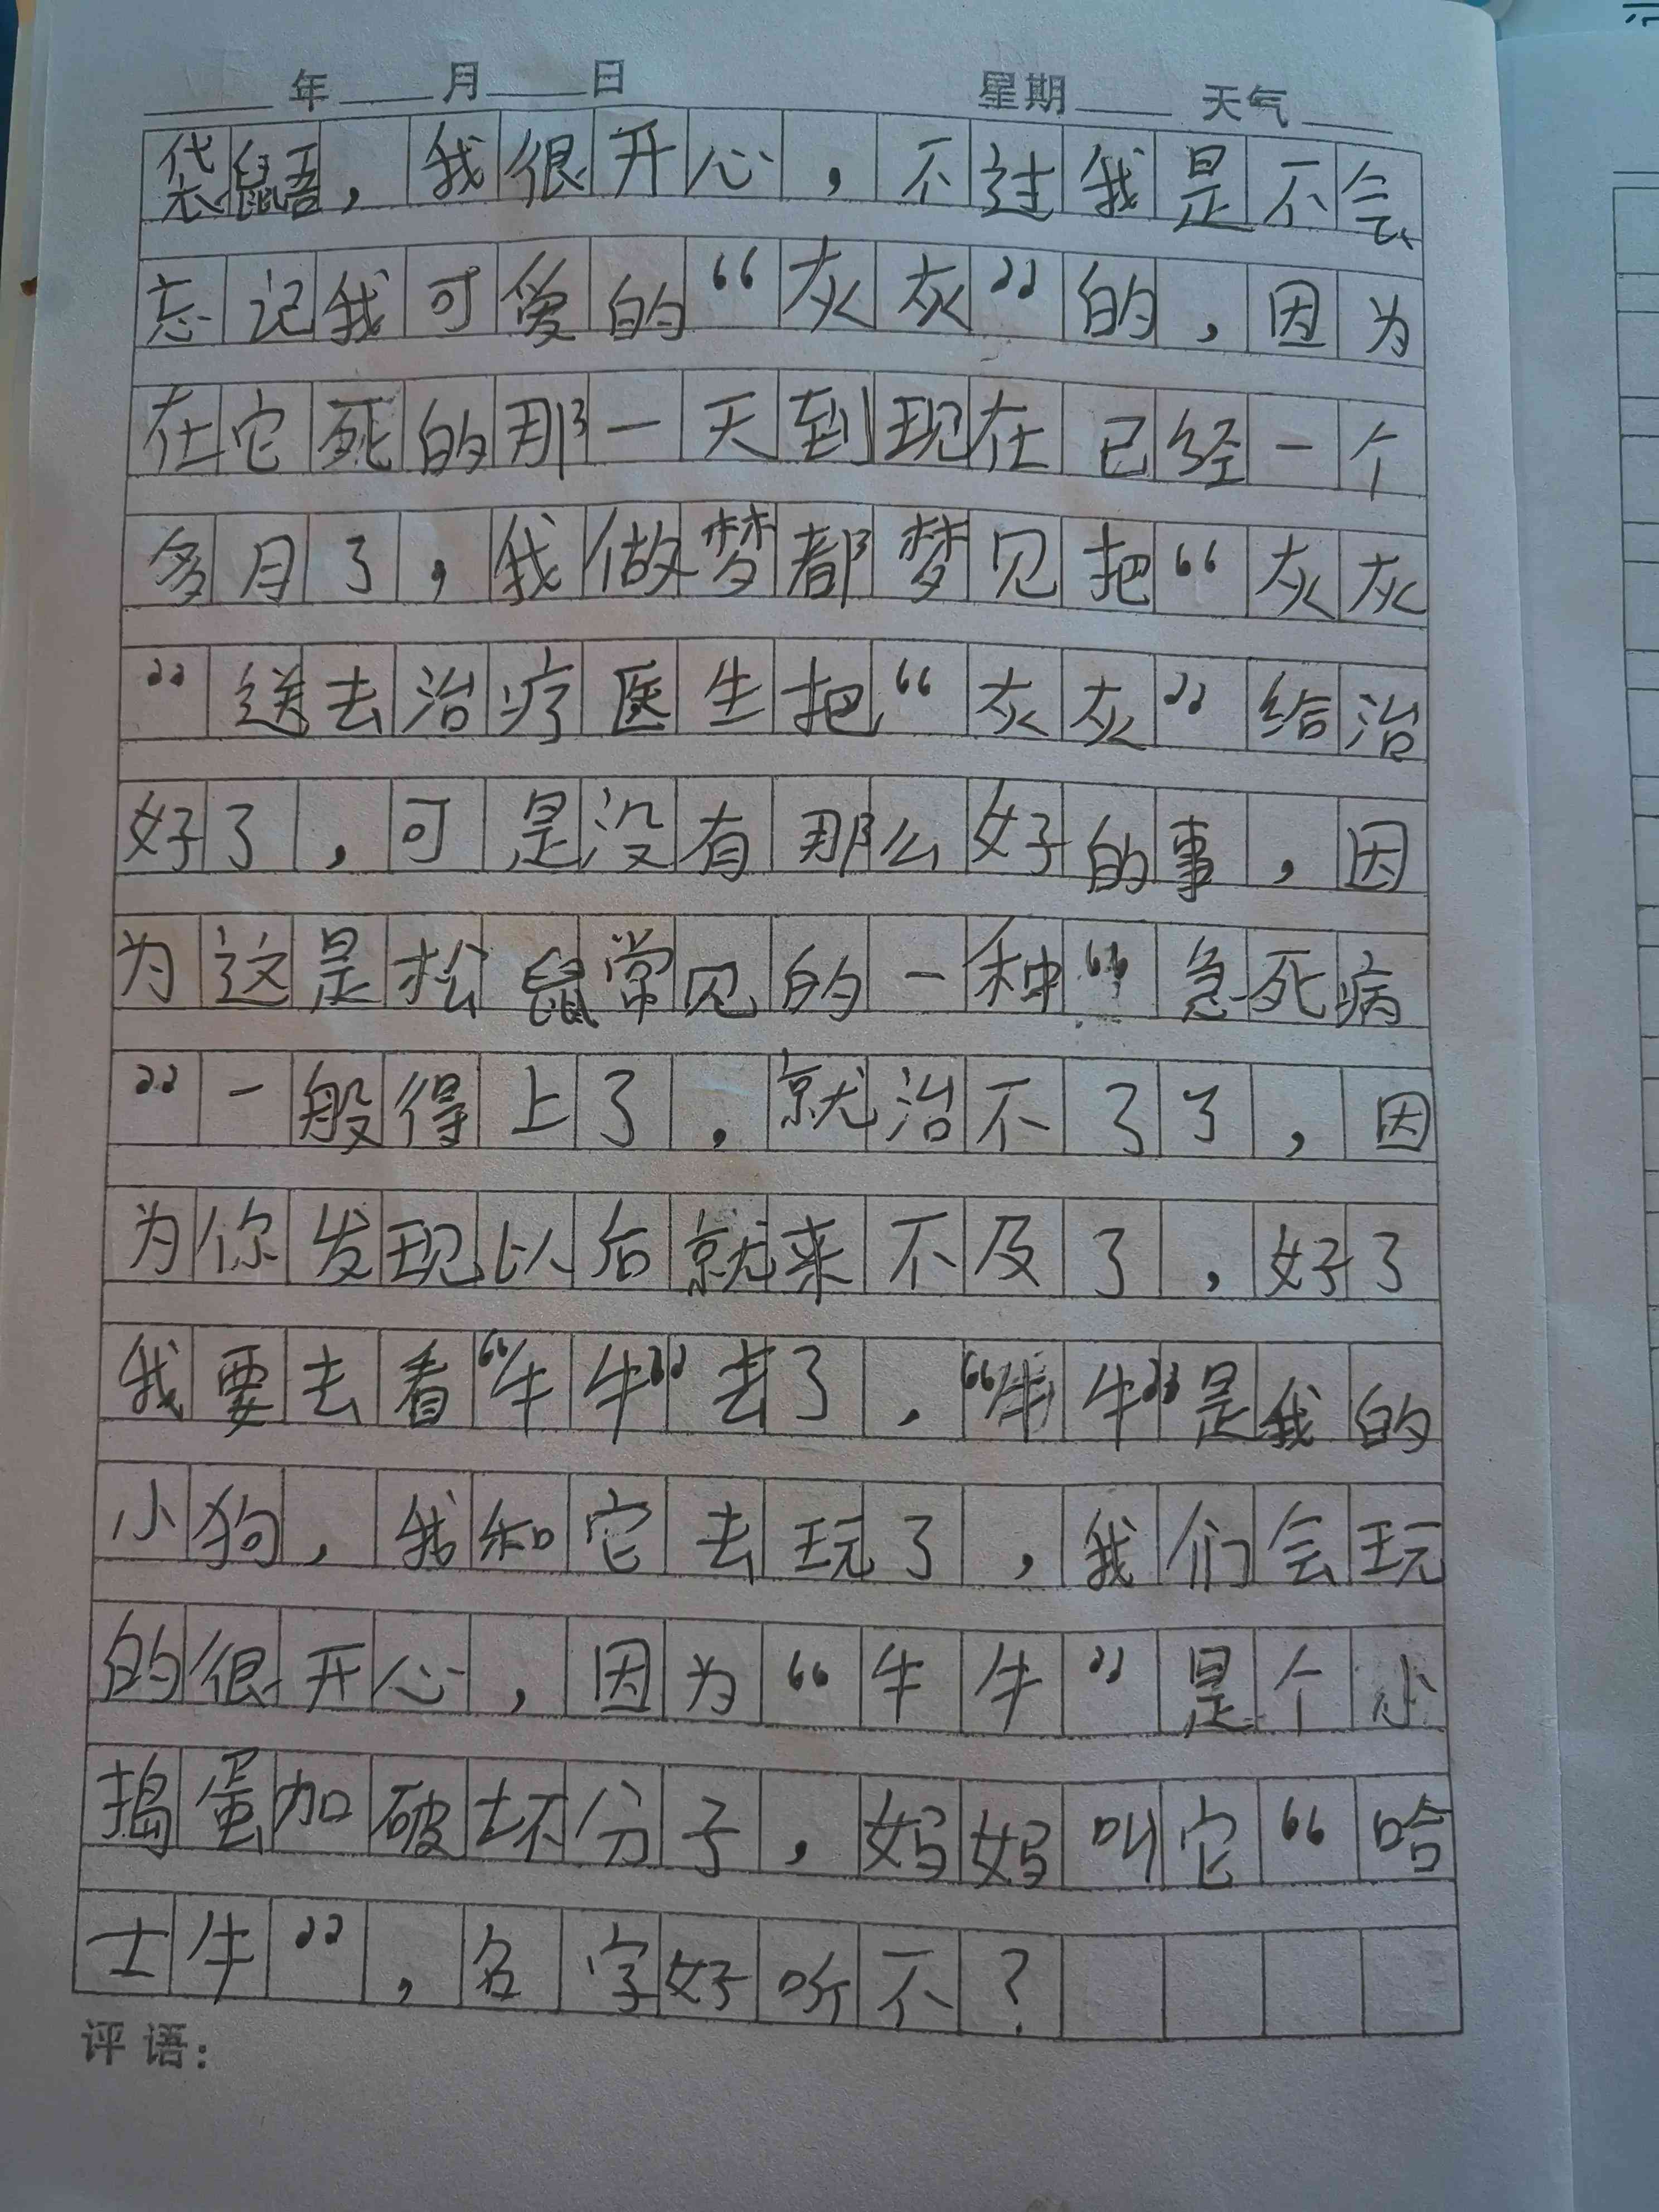 年 月 日 星期 天气
袋鼠语，我很开心，不过我是不会
忘记我可爱的“灰灰”的，因为
在它死的那一天到现在已经一个
多月了，我做梦都梦见把“灰灰
”送去治疗医生把“灰灰”给治
好了，可是没有那么好的事，因
为这是松鼠常见的一种“急死病
”一般得上了，就治不了了，因
为你发现以后就来不及了，好了
我要去看“牛牛”去了，“牛牛”是我的
小狗，我和它去玩了，我们会玩
的很开心，因为“牛牛”是个小
捣蛋加破坏分子，妈妈叫它“哈
士牛”，名字好听不？
评语：